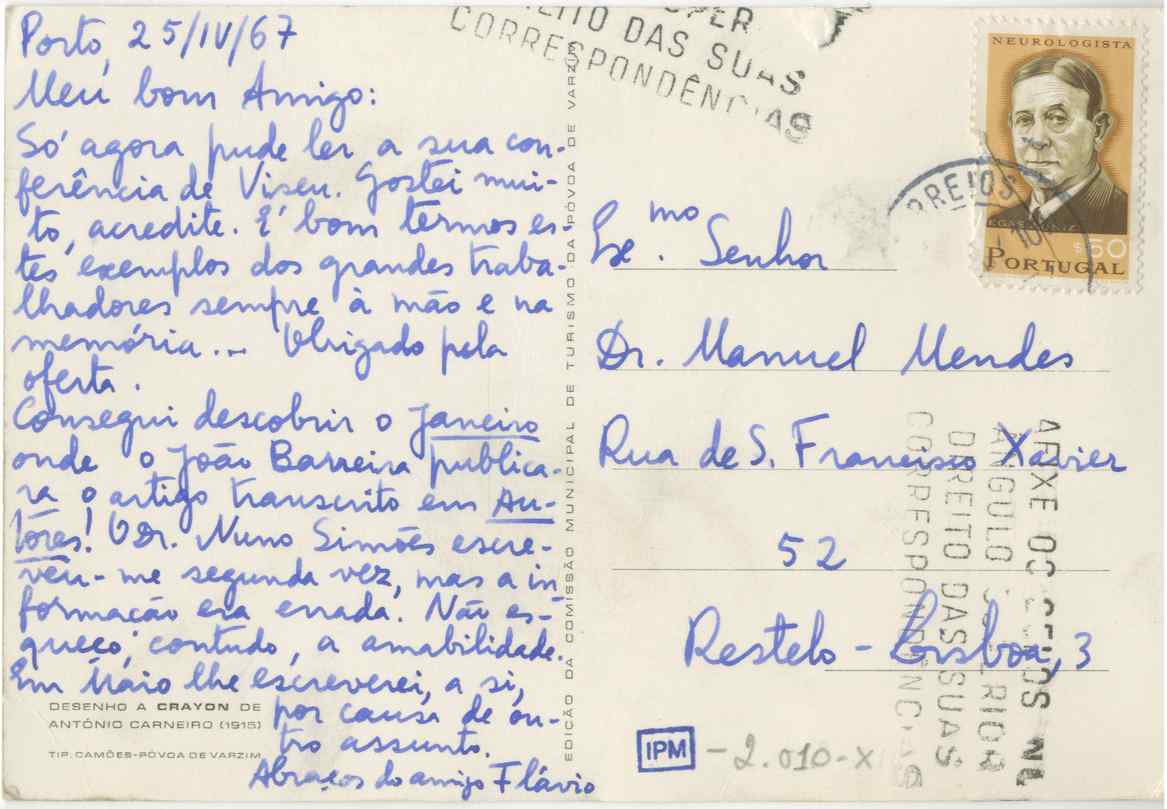 Porto, 25/IV/67
Meu bom Amigo:
Só agora pude ler a sua con-
ferência de Viseu. Gostei mui-
to, acredite. É bom termos es-
tes exemplos dos grandes traba-
lhadores sempre à mão e na
memória... Obrigado pela
oferta.
Consegui descobrir o Janeiro
onde o João Barreira publica-
ra o artigo transcrito em Au-
tores! O Dr. Nuno Simões escre-
veu-me segunda vez, mas a in
formação era errada. Não es-
queço, contudo, a amabilidade.
Em Maio lhe escreverei, a si,
por causa de ou-
tro assunto.
Abraços do amigo Flávio
DESENHO A CRAYON DE
ANTÓNIO CARNEIRO (1915)
TIP. CAMÕES-PÓVOA DE VARZIM
EDIÇÃO DA COMISSÃO MUNICIPAL DE TURISMO DA PÓVOA DE VARZIM
DIREITO DAS SUAS
CORRESPONDÊNCIAS
NEUROLOGISTA
$50
PORTUGAL
CORREIOS
Ex.mo Senhor
Dr. Manuel Mendes
Rua de S. Francisco Xavier
52
Restelo - Lisboa, 3
AFIXE OS SELOS NO
ANGULO SUPERIOR
DIREITO DAS SUAS
CORRESPONDÊNCIAS
IPM
-2.010-X